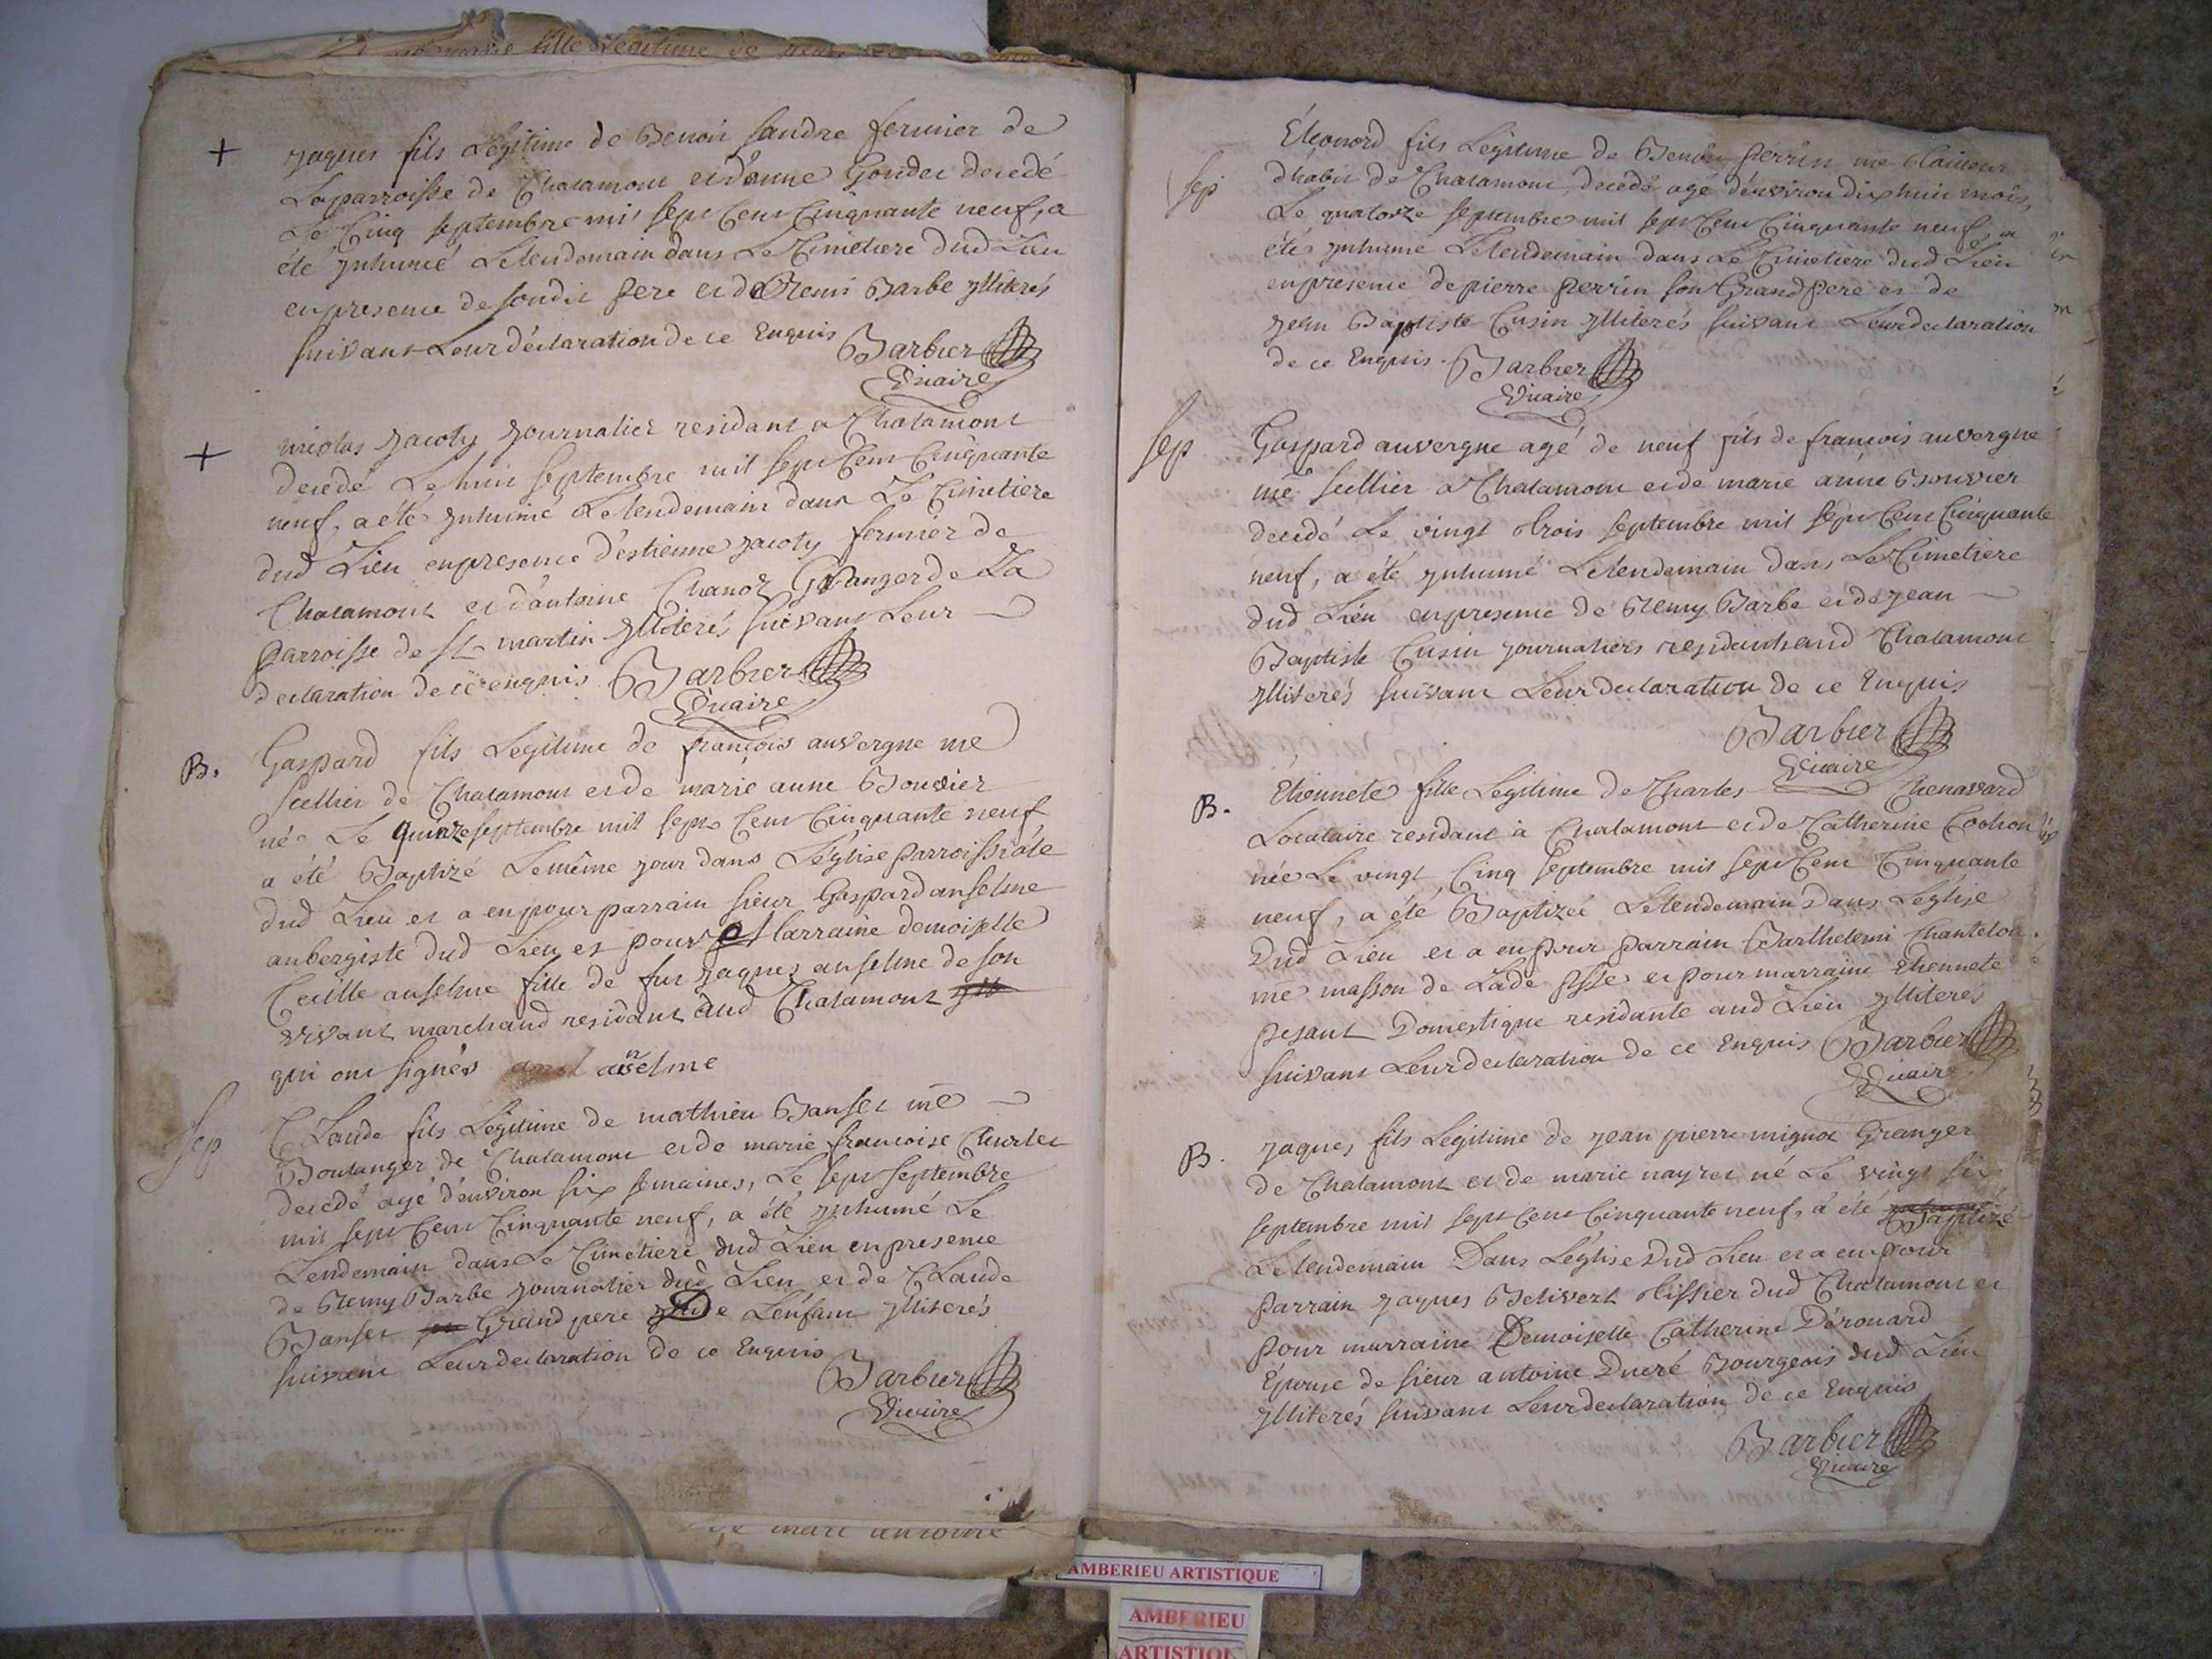 + Jaques fils Légitime de Benoit fermier de
La parroisse de Chatamont et d'anne Gondet decedé
Le Cinq septembre mil sept Cent Cinquante neuf, a
été ynhumé Lelendemain dans Le Cimetiere dud Lieu
en presence de sondit pere et de Remi Barbe yllitérés
suivant Leur déclaration de ce Enquis Barbier
Vicaire
+ nicolas Jacoty Journalier residant a Chatamont
decedé Le huit septembre mil sept Cent Cinquante
neuf, a été ynhumé Lelendemain dans Le Cimetiere
dud Lieu en presence d'estienne Jacoty fermier de
Chatamont et d'antoine Chanoz Granger de La
parroisse de St martin yllitérés suivant Leur
declaration de ce enquis Barbier
Vicaire
B. Gaspard fils Legitime de françois auvergne me
sellier de Chatamont et de marie anne Bouvier
né Le quinze septembre mil sept Cent Cinquante neuf
a été Baptizé Le même jour dans L'église parroissiale
dud Lieu et a eu pour parrain sieur Gaspard anselme
aubergiste dud Lieu et pour Marraine demoiselle
Cecille anselme fille de fut jaques anselme de son
vivant marchand residant aud Chatamont
qui ont signés anselme
Sep Claude fils Légitime de mathieu Banset me
Boulanger de Chatamont et de marie francoise Charlet
decedé agé d'environ six semaines, Le sept septembre
mil sept Cent Cinquante neuf, a été ynhumé Le
Lendemain dans Le Cimetiere dud Lieu en presence
de Remy Barbe journalier dud Lieu et de Claude
Banset Grand pere de L'enfant yllitérés
suivant Leur declaration de ce Enquis
Barbier
Vicaire
Éléonord fils Légitime de perrin me tailleur
Sep d'habit de Chatamont, decedé agé d'environ dix huit mois,
Le quatorze septembre mil sept Cent Cinquante neuf, a
été ynhumé Lelendemain dans Le Cimetiere dud Lieu
en presence de pierre perrin son Grand pere et de
jean Baptiste Cusin yllitérés suivant Leur declaration
de ce Enquis. Barbier
Vicaire
Sep Gaspard auvergne agé de neuf fils de francois auvergne
me sellier a Chatamont et de marie anne Bouvier
decedé Le vingt trois septembre mil sept Cent Cinquante
neuf, a été ynhumé Lelendemain dans Le Cimetiere
dud Lieu en presence de Remy Barbe et de jean
Baptiste Cusin journaliers residants aud Chatamont
yllitérés suivant Leur declaration de ce Enquis
Barbier
Vicaire
B. Étiennete fille Légitime de Charles Chenavard
Locataire residant à Chatamont et de Catherine Cochon
née Le vingt Cinq septembre mil sept Cent Cinquante
neuf, a été Baptizée Lelendemain dans L'église
dud Lieu et a eu pour parrain Barthelemi Chantelon
me masson de Lade psse et pour marraine Etiennete
pesant Domestique residante aud Lieu yllitérés
suivant Leur declaration de ce Enquis Barbier
Vicaire
B. Jaques fils Légitime de jean pierre mignot Granger
de Chatamont et de marie nayret né Le vingt six
septembre mil sept Cent Cinquante neuf, a été Baptizé
Lelendemain Dans L'église dud Lieu et a eu pour
parrain jaques Belivert tissier dud Chatamont et
pour marraine Demoiselle Catherine Dérouard
Épouse de sieur antoine Ducré Bourgeois dud Lieu
yllitérés suivant Leur declaration de ce Enquis
Barbier
Vicaire
AMBERIEU ARTISTIQUE
AMBERIEU